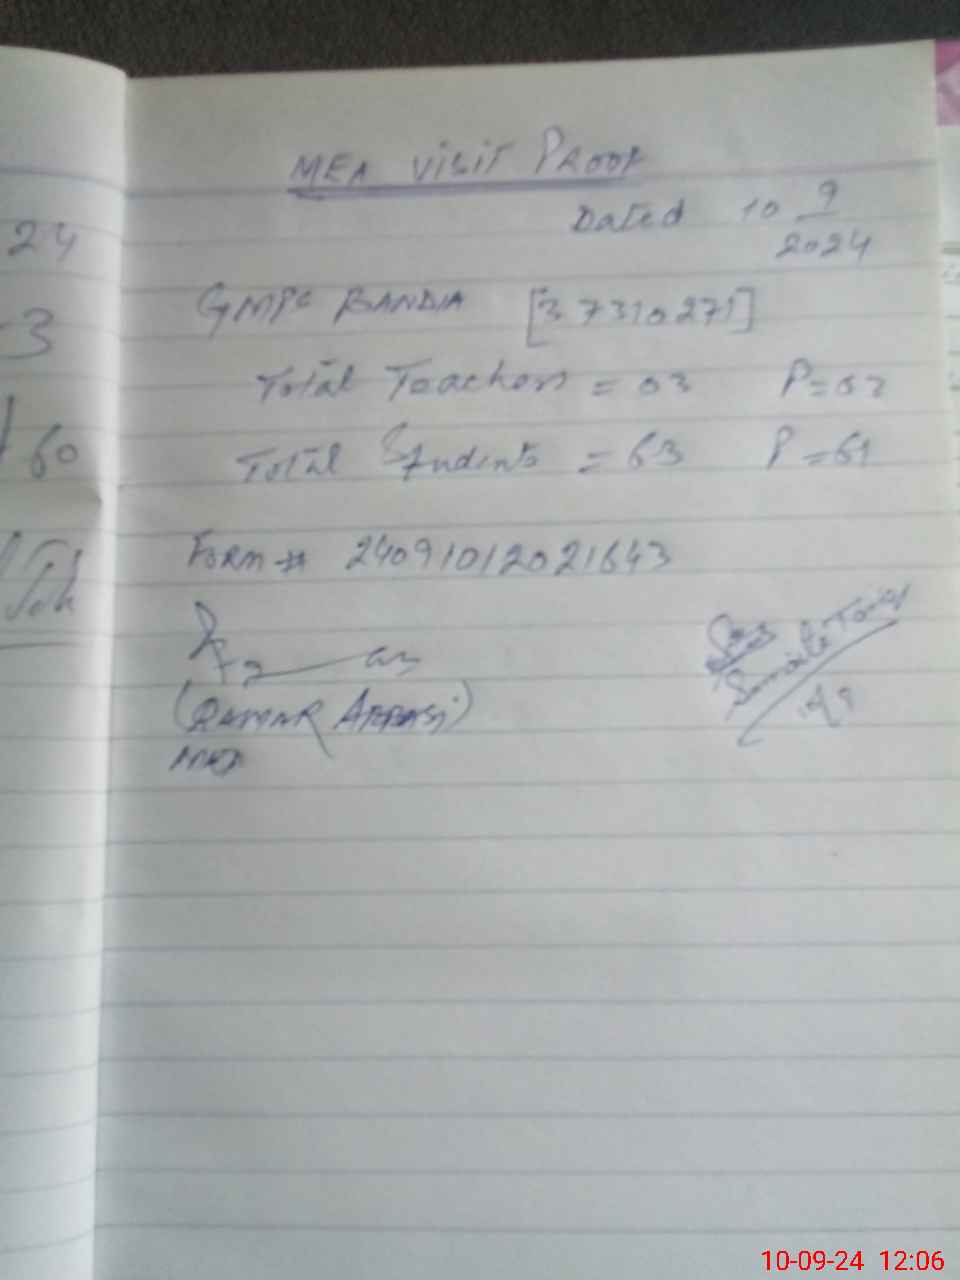 24
3
60
MEA VISIT PROOF
Dated 10 9/2024
GMPS BANDIA [37310271]
Total Teachers = 03 P=03
Total Students = 63 P=61
Form # 24091012021643
Abbasi)
MEA
10/9
10-09-24 12:06